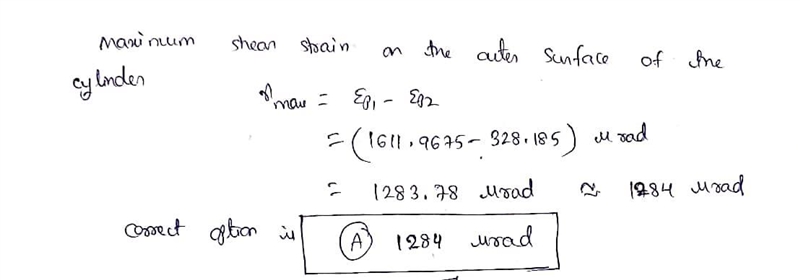 Maximum shear strain on the outer surface of the
cylinder
γmax = εp1 - εp2
= (1611.9675 - 328.185) μ rad
= 1283.78 μrad ≈ 1284 μrad
correct option is (A) 1284 μrad